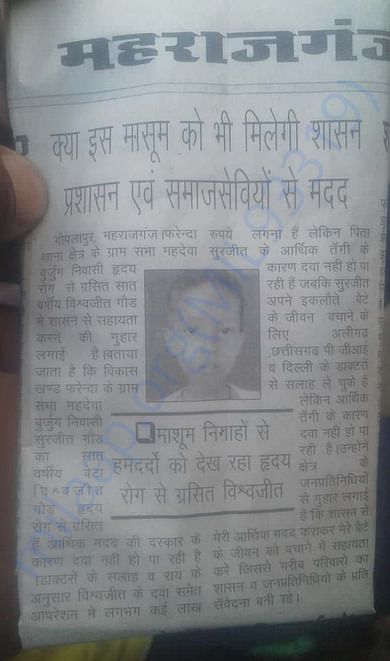 महराजगंज
क्या इस मासूम को भी मिलेगी शासन
प्रशासन एवं समाजसेवियों से मदद
गोपलापुर, महराजगंज।फरेन्दा
थाना क्षेत्र के ग्राम सभा महदेवा
बुर्जुग निवासी हृदय
रोग से ग्रसित सात
वर्षीय विश्वजीत गौड
ने शासन से सहायता
करने की गुहार
लगाई है।बताया
जाता है कि विकास
खण्ड फरेन्दा के ग्राम
सभा महदेवा
बुर्जुग निवासी
सुरजीत गौड
का सात
वर्षीय बेटा
विश्वजीत
गौड हृदय
रोग से ग्रसित
है आर्थिक मदद की दरकार के
कारण दवा नहीं हो पा रही है
।डाक्टरों के सलाह व राय के
अनुसार विश्वजीत के दवा समेत
आपरेशन में लगभग कई लाख
माशूम निगाहों से
हमदर्दों को देख रहा हृदय
रोग से ग्रसित विश्वजीत
रुपये लगना है लेकिन पिता
सुरजीत के आर्थिक तँगी के
कारण दवा नहीं हो पा
रही है जबकि सुरजीत
अपने इकलौते बेटे
के जीवन बचाने के
लिए अलीगढ
,छत्तीसगढ पी जीआई
व दिल्ली के डाक्टरों
से सलाह ले चुके हैं
लेकिन आर्थिक
तँगी के कारण
दवा नहीं हो पा
रही है।उन्होंने
क्षेत्र के
जनप्रतिनिधियों
से गुहार लगाई
है कि शासन से
मेरी आर्थिक मदद कराकर मेरे बेटे
के जीवन को बचाने में सहायता
करे जिससे गरीब परिवारो का
शासन व जनप्रतिनिधियो के प्रति
संवेदना बनी रहे।
milaap.org